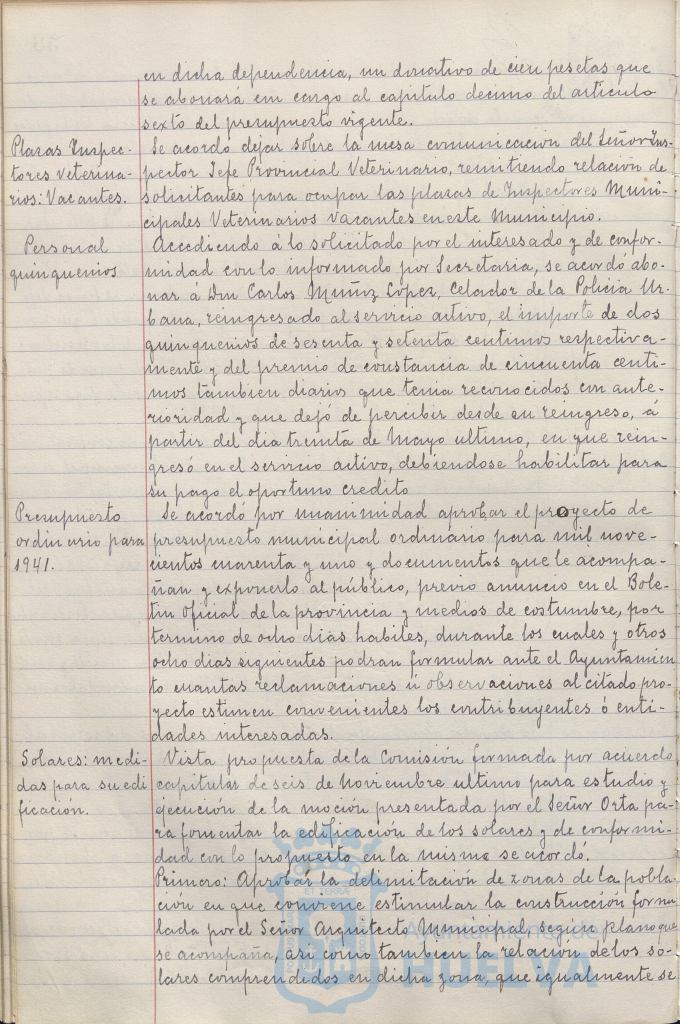 en dicha dependencia, un donativo de cien pesetas que
se abonará con cargo al capitulo decimo del articulo
sexto del presupuesto vigente.
Plazas Inspec-
tores veterina-
rios: Vacantes.
Se acordo dejar sobre la mesa comunicacion del Señor Ins-
pector Jefe Provincial Veterinario, remitiendo relación de
solicitantes para ocupar las plazas de Inspectores Muni-
cipales Veterinarios vacantes en este Municipio.
Personal
quinquenios
Accediendo á lo solicitado por el interesado y de confor-
midad con lo informado por Secretaria, se acordó abo-
nar á Don Carlos Muñoz López, Celador de la Policia Ur-
bana, reingresado al servicio activo, el importe de dos
quinquenios de sesenta y setenta centimos respectiva-
mente y del premio de constancia de cincuenta centi-
mos tambien diarios que tenia reconocidos con ante-
rioridad y que dejó de percibir desde su reingreso, á
partir del dia treinta de Mayo ultimo, en que rein-
gresó en el servicio activo, debiendose habilitar para
su pago el oportuno credito
Presupuesto
ordinario para
1941.
Se acordó por unanimidad aprobar el proyecto de
presupuesto municipal ordinario para mil nove-
cientos cuarenta y uno y documentos que le acompa-
ñan y exponerlo al público, previo anuncio en el Bole-
tin Oficial de la provincia y medios de costumbre, por
termino de ocho dias habiles, durante los cuales y otros
ocho dias siguientes podran formular ante el Ayuntamien
to cuantas reclamaciones ú observaciones al citado pro-
yecto estimen convenientes los contribuyentes ó enti-
dades interesadas.
Solares: medi-
das para su edi
ficación.
Vista propuesta de la Comisión formada por acuerdo
capitular de seis de Noviembre ultimo para estudio y
ejecución de la moción presentada por el Señor Orta pa-
ra fomentar la edificación de los solares y de conformi-
dad con lo propuesto en la misma se acordó.
Primero: Aprobar la delimitación de zonas de la pobla-
ción en que conviene estimular la construcción formu
lada por el Señor Arquitecto Municipal, según plano que
se acompaña, asi como tambien la relación de los so-
lares comprendidos en dicha zona, que igualmente se
Ayuntamiento de
HUELVA